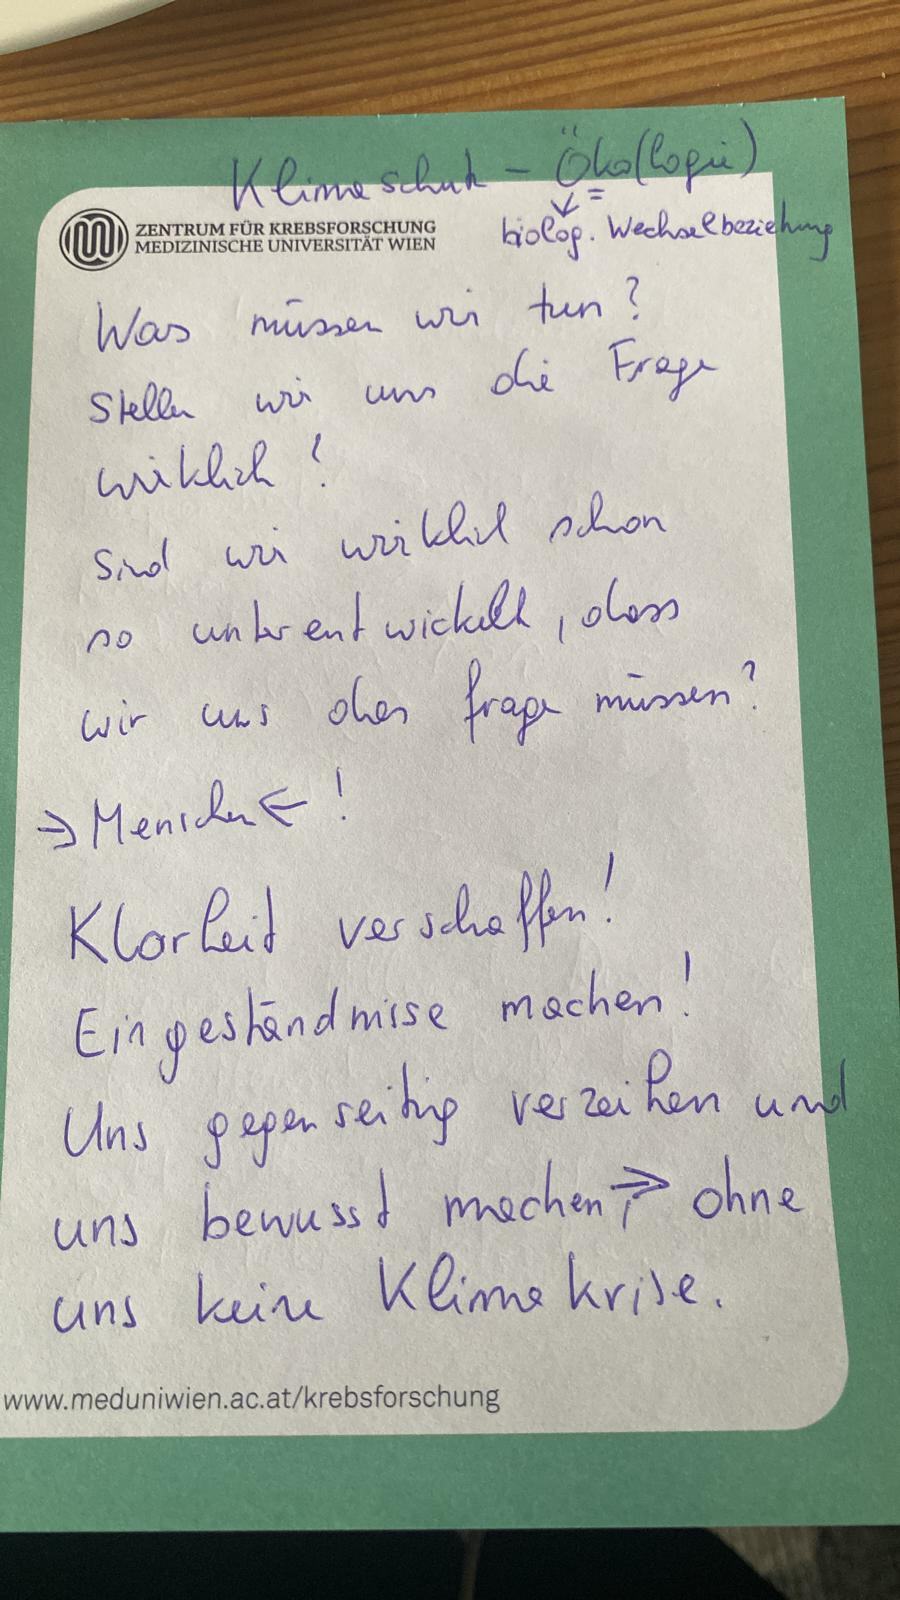 Klimaschutz - Öko(logie)
ZENTRUM FÜR KREBSFORSCHUNG
MEDIZINISCHE UNIVERSITÄT WIEN
biolog. Wechselbeziehung
Was müssen wir tun?
Stellen wir uns die Frage
wirklich?
Sind wir wirklich schon
so unterentwickelt, dass
wir uns das fragen müssen?
→ Menschen ← !
Klarheit verschaffen!
Eingeständnisse machen!
Uns gegenseitig verzeihen und
uns bewusst machen, → ohne
uns keine Klimakrise.
www.meduniwien.ac.at/krebsforschung